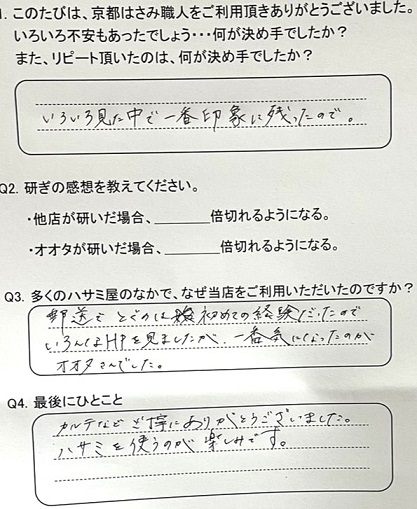 1. このたびは、京都はさみ職人をご利用頂きありがとうございました。
いろいろ不安もあったでしょう・・・何が決め手でしたか?
また、リピート頂いたのは、何が決め手でしたか?
いろいろ見た中で一番印象に残ったので。
Q2. 研ぎの感想を教えてください。
・他店が研いだ場合、______倍切れるようになる。
・オオタが研いだ場合、______倍切れるようになる。
Q3. 多くのハサミ屋のなかで、なぜ当店をご利用いただいたのですか?
郵送でとぐのは初めての経験だったので
いろんなHPを見ましたが、一番気になったのが
オオタさんでした。
Q4. 最後にひとこと
カルテなどご丁寧にありがとうございました。
ハサミを使うのが楽しみです。